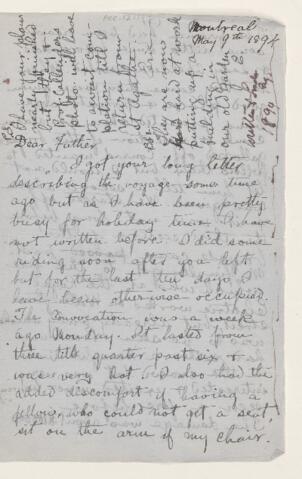 Montreal
May 9th 189
Dear Father
I got your long letter
describing the voyage some time
ago but as I have been pretty
busy for holiday time I have
not written before. I did some
riding soon after you left
but for the last ten days I
have been otherwise occupied.
The Convocation was a week
ago Monday. It lasted from
three till quarter past six &
was very hot & I also had the
added discomfort of having a
fellow, who could not get a seat,
sit on the arm of my chair.
I have your
nearly finished
but
photo will have
to await com-
pletion till I
return from
St Agathe.
Eric
They are now
hard at work
putting up a
building in
our old garden
1890